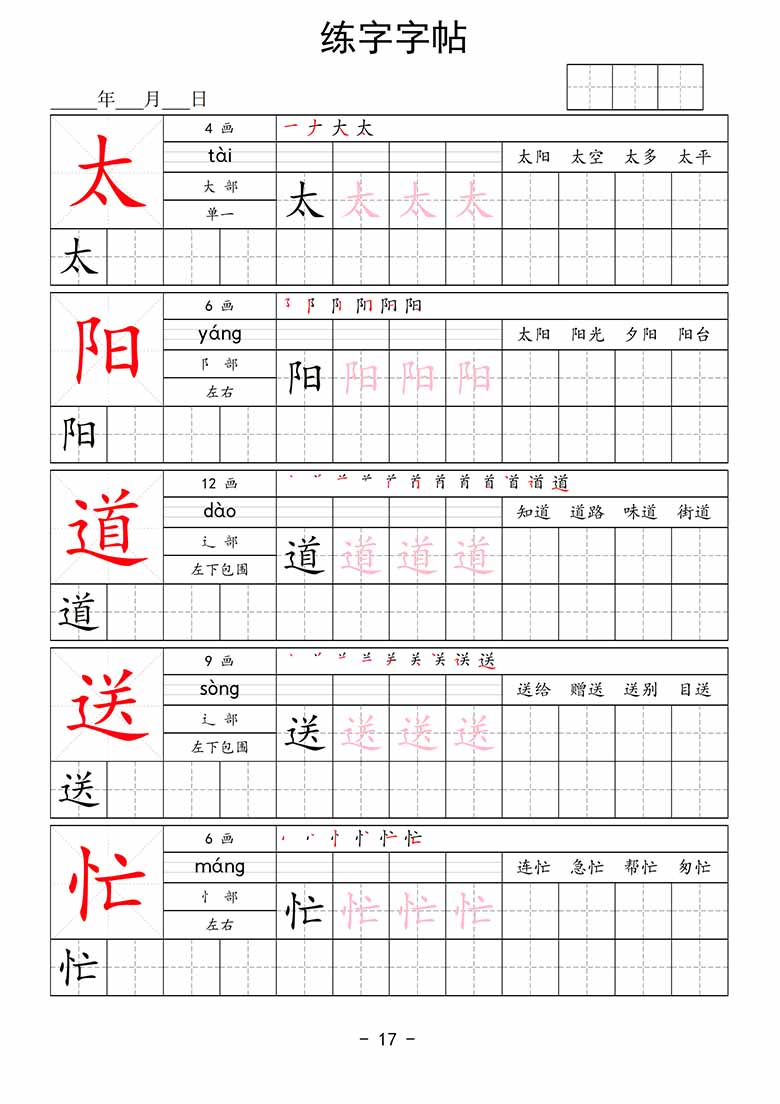 练字字帖
_____年___月___日
太 4 画 一 ナ 大 太
tài 太阳 太空 太多 太平
大 部 太 太 太 太
单一
太
阳 6 画 阳
yáng 太阳 阳光 夕阳 阳台
阝 部 阳 阳 阳 阳
左右
阳
道 12 画 道
dào 知道 道路 味道 街道
辶 部 道 道 道 道
左下包围
道
送 9 画 送
sòng 送给 赠送 送别 目送
辶 部 送 送 送 送
左下包围
送
忙 6 画 忙
máng 连忙 急忙 帮忙 匆忙
忄 部 忙 忙 忙 忙
左右
忙
- 17 -